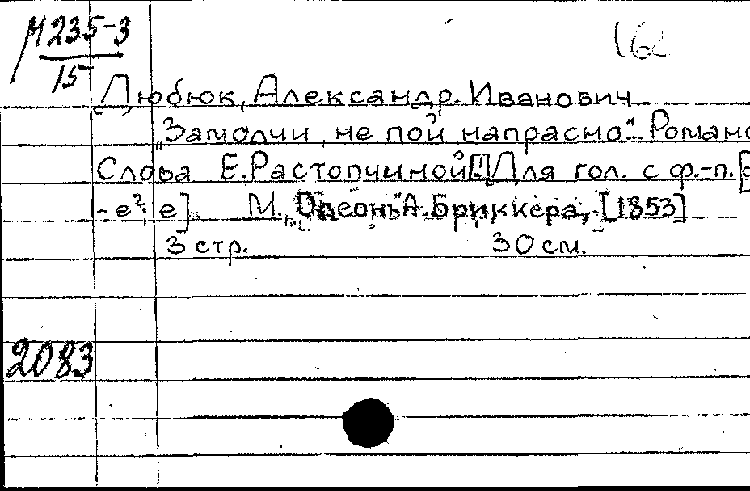 М 235-3
15
162
Дюбюк, Александр Иванович
"Замолчи, не пой напрасно". Романс
Слова Е. Растопчиной [!] Для гол. с ф.-п. [
-e²; e] М., "Одеонъ" А. Бриккера, [1853]
3 стр. 30 см.
2083